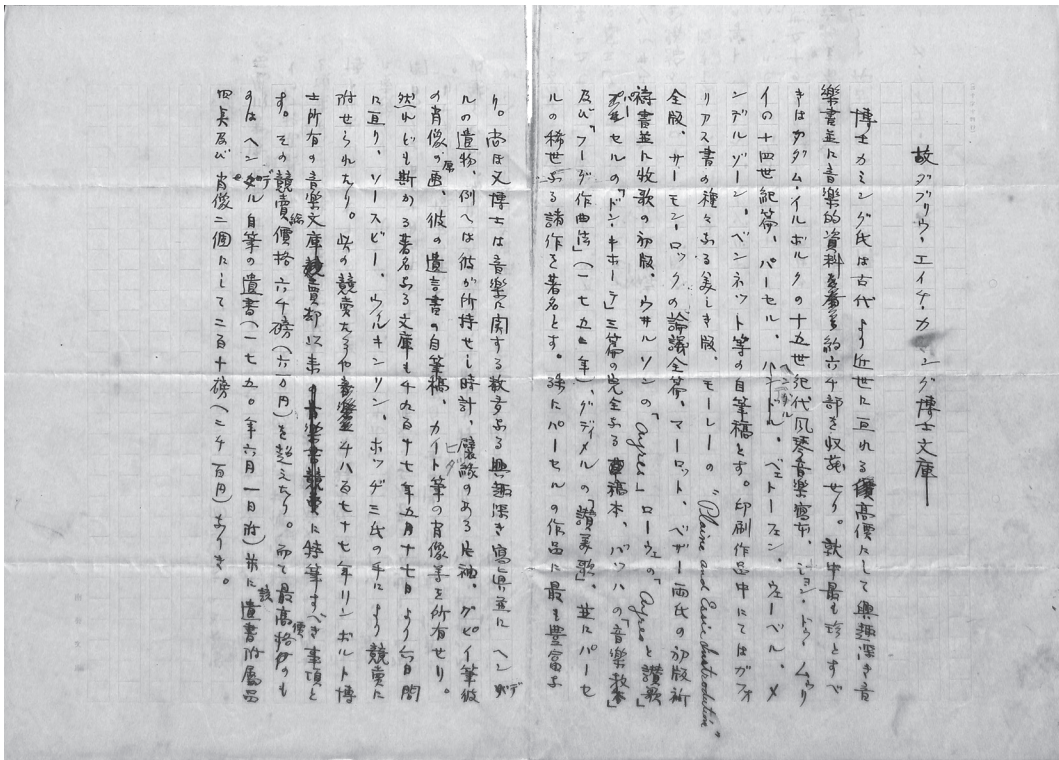 故ダブリウ・エイチ・カミング博士文庫
博士カミング氏は古代より近世に亙れる高價にして興趣深き音
樂書並に音樂的資料約六千部を収蔵せり。就中最も珍とすべ
きはアダム・イルボルクの十五世紀代風琴音樂寫本、ジョン・
イの十四世紀篇、パーセル、ヘンデル、ベェトーフェン、ウェーベル、メ
ンデルゾーン、ベンネット等の自筆稿とす。印刷作品中にてはガフォ
リアス書の種々なる美しき版、モーレーの "Plaine and Easie Introduction"
全版、サーモン・ロックの論議全篇、マーロット、ベザー両氏の初版祈
祷書並に牧歌の初版、ウサルソンの「Ayres」ローウェの「Ayres」と讃歌
パーセルの「ドン・キホーテ」三篇の完全なる草稿本、バッハの「音樂教本」
及び「フーガ作曲法」(一七五〇年)、グディメルの「讃美歌」、並にパーセ
ルの稀世なる諸作を著名とす。殊にパーセルの作品に最も豊富な
り。尚ほ又博士は音樂に関する数多なる興趣深き寫眞並に ヘンデ
ルの遺物、例へは彼が所持せし時計、襞縁のある片袖、グピイ筆彼
の肖像原画、彼の遺言書の自筆稿、カイト筆の肖像等を所有せり。
然れども斯かる著名なる文庫も千九百十七年五月十七日より六日間
に亙り、ソースビー、ウィルキンソン、ホッヂ三氏の手により競賣に
附せられたり。此の競賣たるや千八百七十七年リンボルト博
士所有の音楽文庫賣却以来特筆すべき事項と
す。その競賣總價格六千磅(六万円)を超えたり。而て最高價格のも
のはヘンデル自筆の遺書(一七五〇年六月一日附)並に該遺書附属品
四点及び肖像二個にして二百十磅(二千百円)なりき。